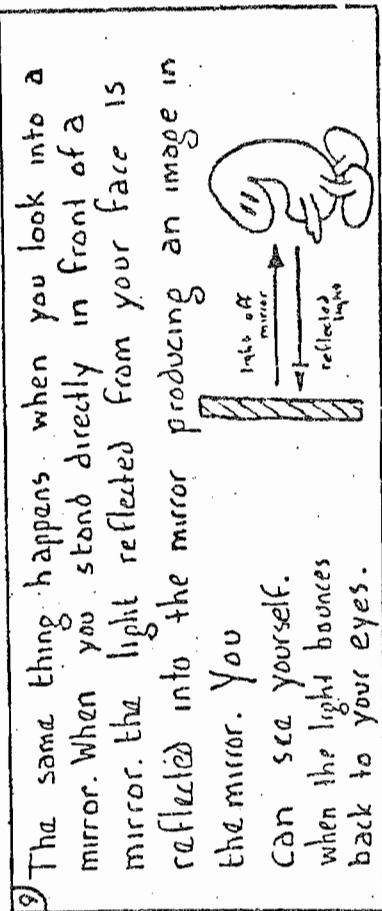 8
The same thing happens when you look into a
mirror. When you stand directly in front of a
mirror, the light reflected from your face is
reflected into the mirror producing an image in
the mirror. You
can see yourself.
when the light bounces
back to your eyes.
light off
mirror
reflected
light